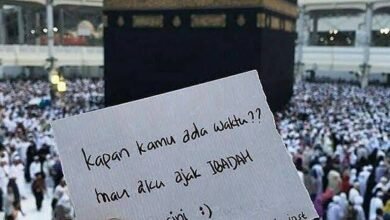 kapan kamu ada waktu??
mau aku ajak IBADAH
:)